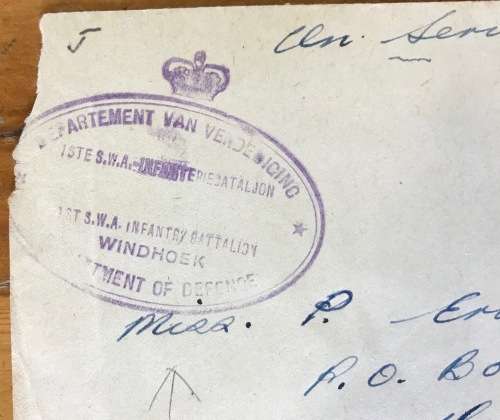 J
On. Serv
DEPARTEMENT VAN VERDEDIGING
1STE S.W.A.-INFANTERIEBATALJON
1ST S.W.A. INFANTRY BATTALION
WINDHOEK
TMENT OF DEFENCE
Miss. P.
P.O. Bo